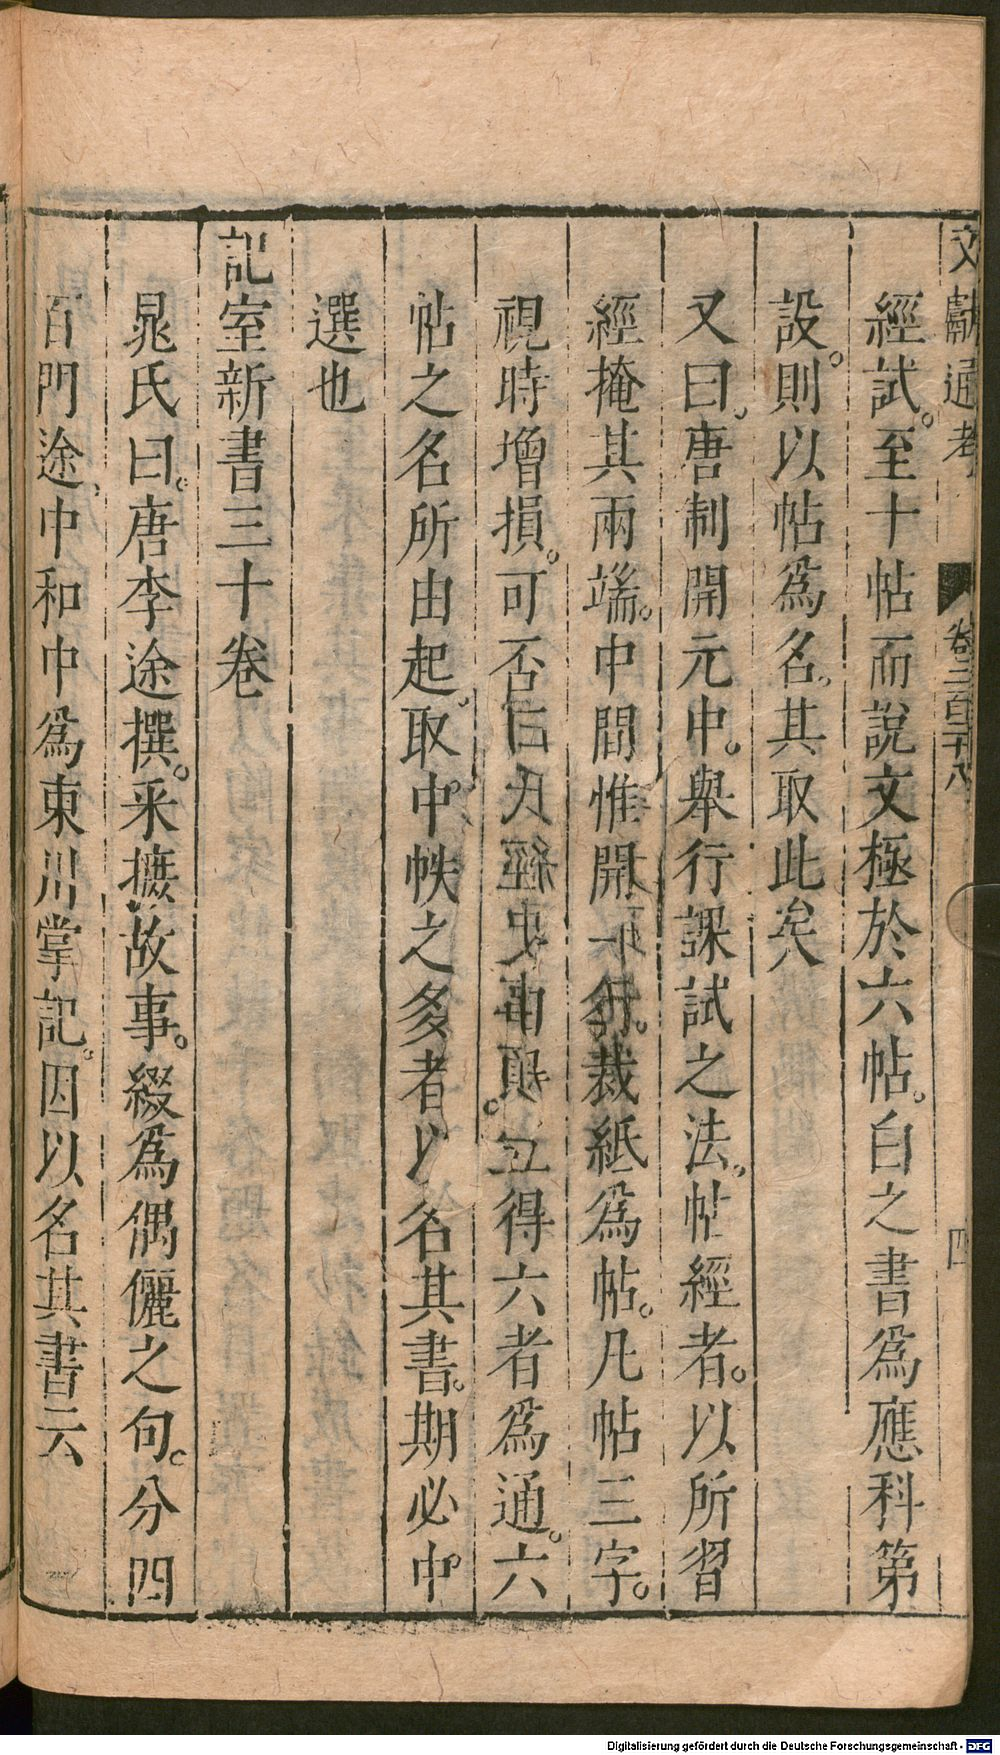 文獻通考 卷二百二十八 四
經試。至十帖而說文極於六帖。白之書爲應科第
設。則以帖爲名。其取此矣
又曰。唐制開元中。舉行課試之法。帖經者。以所習
經掩其兩端。中間惟開一行。裁紙爲帖。凡帖三字。
視時增損。可否 得六者爲通。六
帖之名所由起。取中。帙之多者以名其書。期必中
選也
記室新書三十卷
晁氏曰。唐李途撰。采摭故事。綴爲偶儷之句。分四
百門途。中和中爲東川掌記。因以名其書云
Digitalisierung gefördert durch die Deutsche Forschungsgemeinschaft - DFG